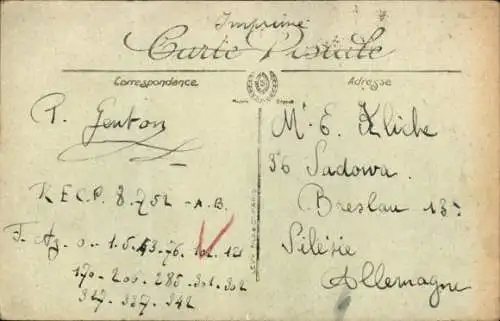 Imprimé
Carte Postale
Correspondance
Adresse
P. Genton
K E C P. 8.752 - A.B.
1.5. 53.76. 102. 121
170 - 206 - 285 - 301 - 302
327 - 337 - 342
Mr E. Kliche
36 Sadowa.
Breslau 18
Silésie
Allemagne